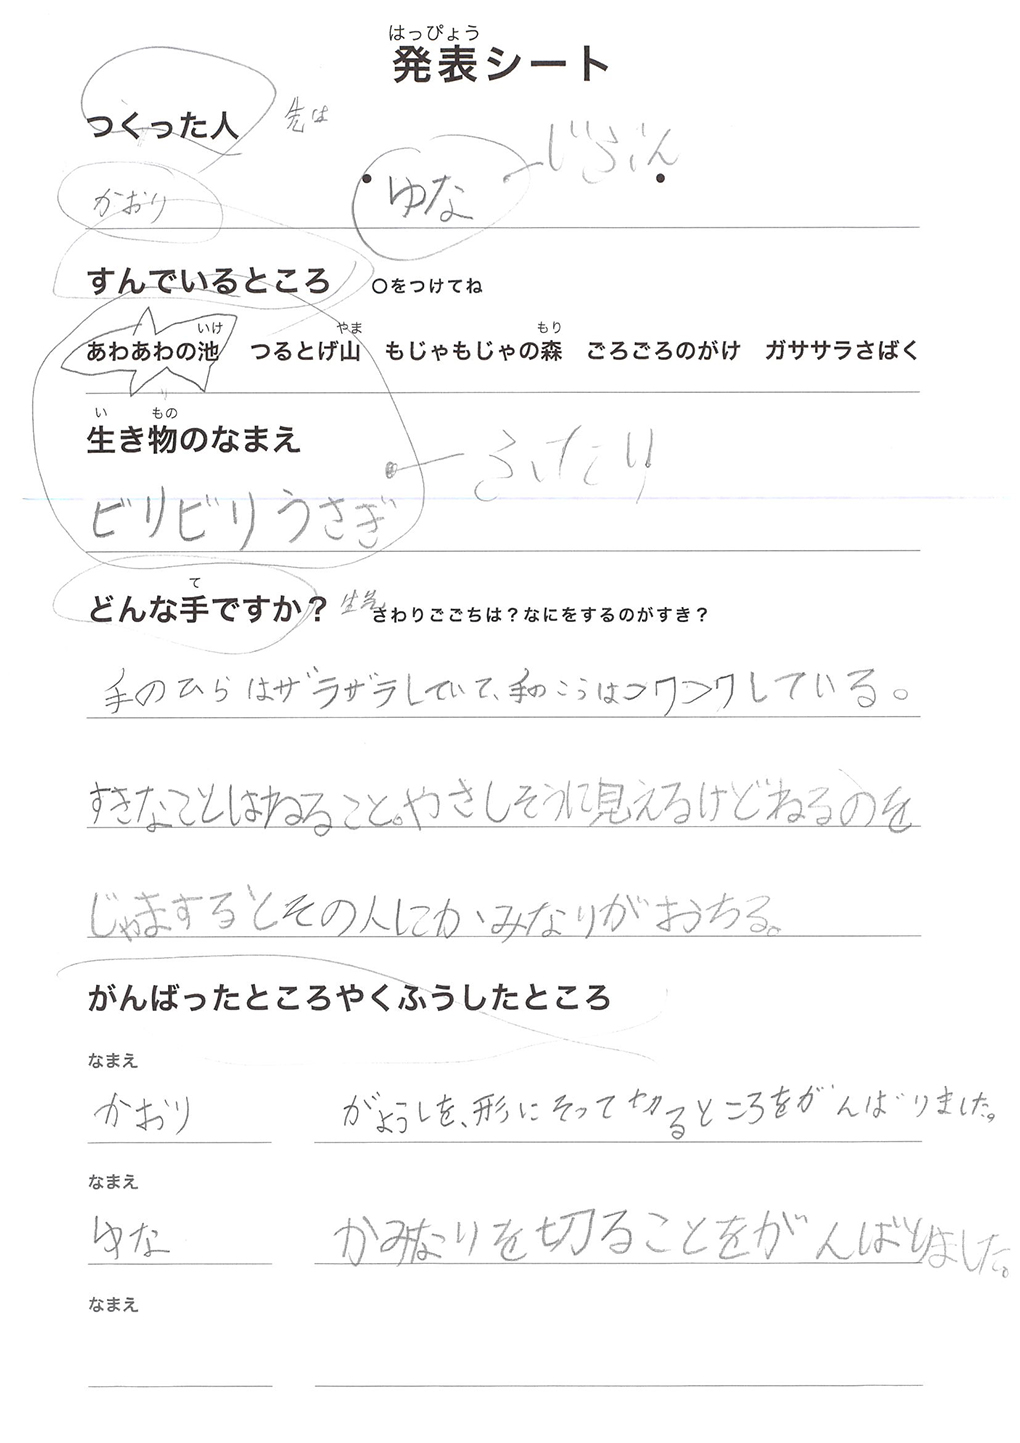 はっぴょう
発表シート
つくった人 先は
かおり ゆな じぶん
すんでいるところ ○をつけてね
いけ やま もり
あわあわの池 つるとげ山 もじゃもじゃの森 ごろごろのがけ ガササラさばく
い もの
生き物のなまえ
ふたり
ビリビリうさぎ
て
どんな手ですか? さわりごごちは?なにをするのがすき?
手のひらはザラザラしていて、手のこうはコワコワしている。
すきなことはねること。やさしそうに見えるけどねるのを
じゃまするとその人にかみなりがおちる。
がんばったところやくふうしたところ
なまえ
かおり がようしを、形にそって切るところをがんばりました。
なまえ
ゆな かみなりを切ることをがんばりました。
なまえ